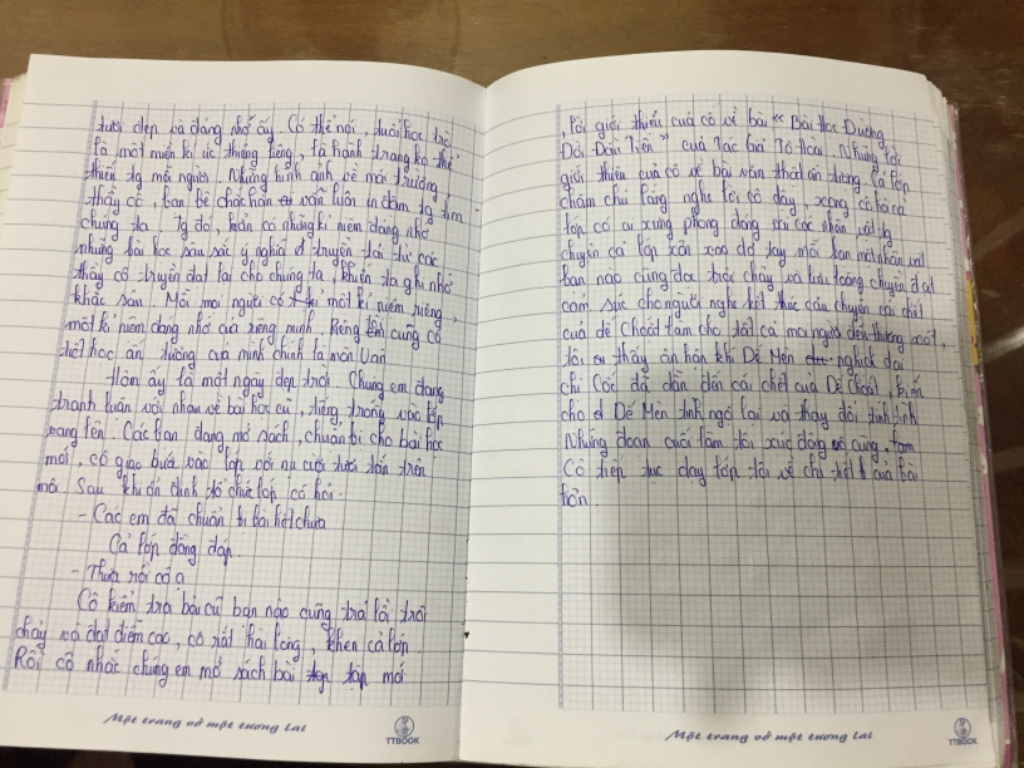 tươi đẹp và đáng nhớ ấy. Có thể nói, tuổi học trò
là một miền kí ức thiêng liêng, là hành trang ko thể
thiếu tg mỗi người. Những hình ảnh về mái trường,
thầy cô, bạn bè chắc hẳn vẫn luôn in đậm tg tim
chúng ta. Tg đó, hẳn có những kỉ niệm đáng nhớ
những bài học sâu sắc ý nghĩa đ truyền tải từ các
thầy cô truyền đạt lại cho chúng ta, khiến ta ghi nhớ
khắc sâu. Mỗi mọi người có kỉ một kỉ niệm riêng,
một kỉ niệm đáng nhớ của riêng mình. Riêng em cũng có
tiết học ấn tượng của mình chính là môn Văn
Hôm ấy là một ngày đẹp trời. Chúng em đang
tranh luận với nhau về bài học cũ, tiếng trống vào lớp
vang lên. Các bạn đang mở sách, chuẩn bị cho bài học
mới, cô giáo bước vào lớp với nụ cười tươi tắn trên
môi Sau khi ổn định tổ chức lớp cô hỏi.
- Các em đã chuẩn bị bài hết chưa
Cả lớp đồng đáp.
- Thưa rồi cô ạ
Cô kiểm tra bài cũ bạn nào cũng trả lời trôi
chảy và đạt điểm cao, cô rất hài lòng, khen cả lớp.
Rồi cô nhắc chúng em mở sách bài tập mới
Một trang vở một tương lai
TTBOOK
, lời giới thiệu của cô về bài "Bài Học Đường
Đời Đầu Tiên" của Tác giả Tô Hoài. Những lời
giới thiệu của cô về bài văn thật ấn tượng, cả lớp
chăm chú lắng nghe lời cô dạy, xong cô hỏi cả
lớp có ai xung phong đóng vai các nhân vật tg
chuyện cả lớp xôn xao dơ tay mỗi bạn một nhân vật
bạn nào cũng đọc trôi chảy và lưu loáng chuyền đạt
cảm xúc cho người nghe kết thúc câu chuyện cái chết
của dế Choắt làm cho tất cả mọi người đều thương xót,
tôi thấy ân hận khi Dế Mèn nghịch dại
chị Cốc đã dẫn đến cái chết của Dế Choắt, kiến
cho Dế Mèn tỉnh ngộ lại và thay đổi tính tình
Những đoạn cuối làm tôi xúc động vô cùng,
Cô tiếp tục dạy lớp tôi về chi tiết của bài
hơn.
Một trang vở một tương lai
TTBOOK